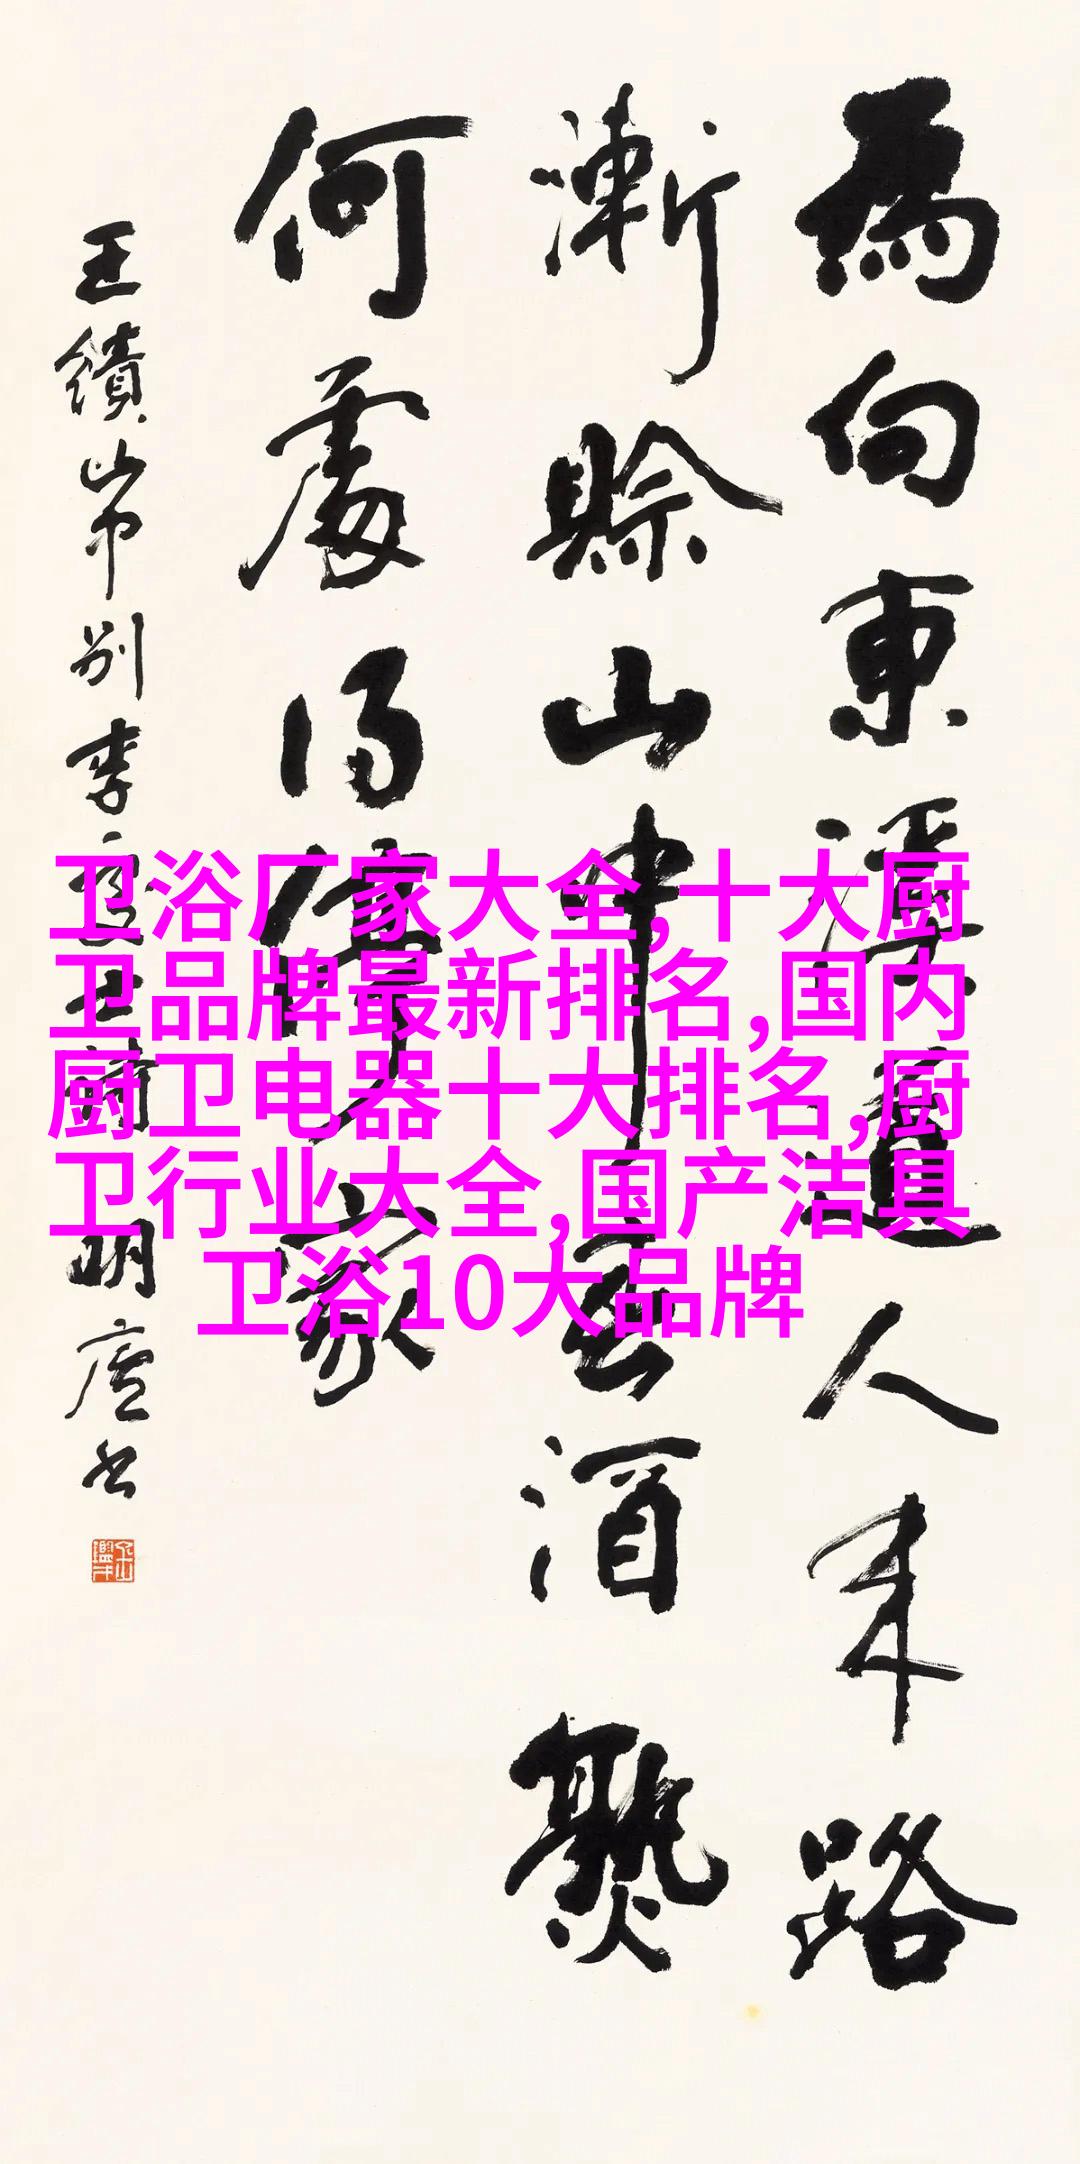 為向東溪道人來路
漸賒山中春酒熟
何處得停家
王績山中別李處士詩 明廬書
卫浴厂家大全,十大厨
卫品牌最新排名,国内
厨卫电器十大排名,厨
卫行业大全,国产洁具
卫浴10大品牌